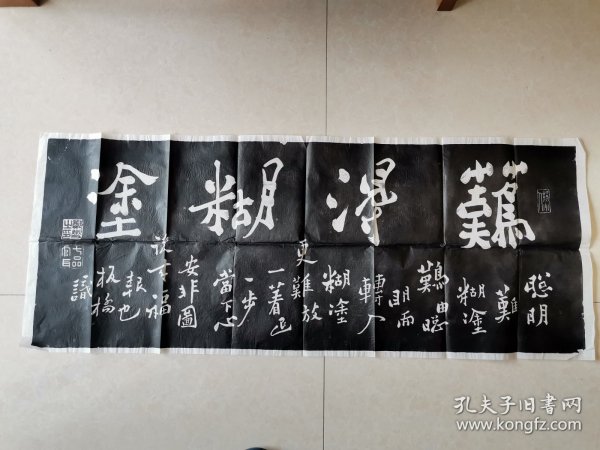 難得糊塗
聰明
難
糊塗
難由聰
明而
轉入
糊塗
更難放
一着退
一步
當下心
安非圖
後来福
報也
板橋
識
七品官耳
孔夫子旧书网
www.kongfz.com